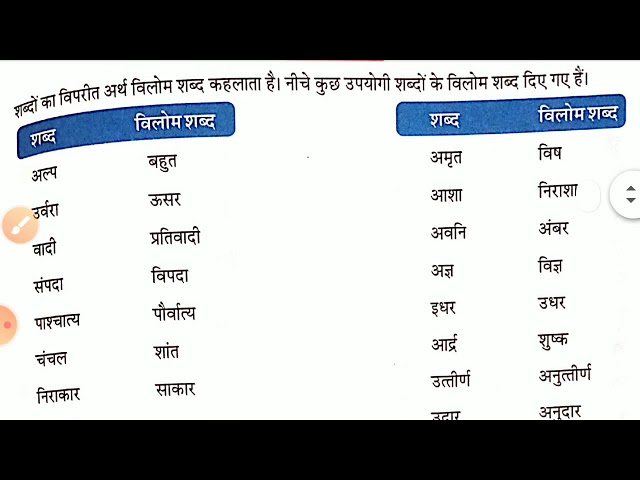 शब्दों का विपरीत अर्थ विलोम शब्द कहलाता है। नीचे कुछ उपयोगी शब्दों के विलोम शब्द दिए गए हैं।
शब्द विलोम शब्द
अल्प बहुत
उर्वरा ऊसर
वादी प्रतिवादी
संपदा विपदा
पाश्चात्य पौर्वात्य
चंचल शांत
निराकार साकार
शब्द विलोम शब्द
अमृत विष
आशा निराशा
अवनि अंबर
अज्ञ विज्ञ
इधर उधर
आर्द्र शुष्क
उत्तीर्ण अनुत्तीर्ण
उदार अनुदार